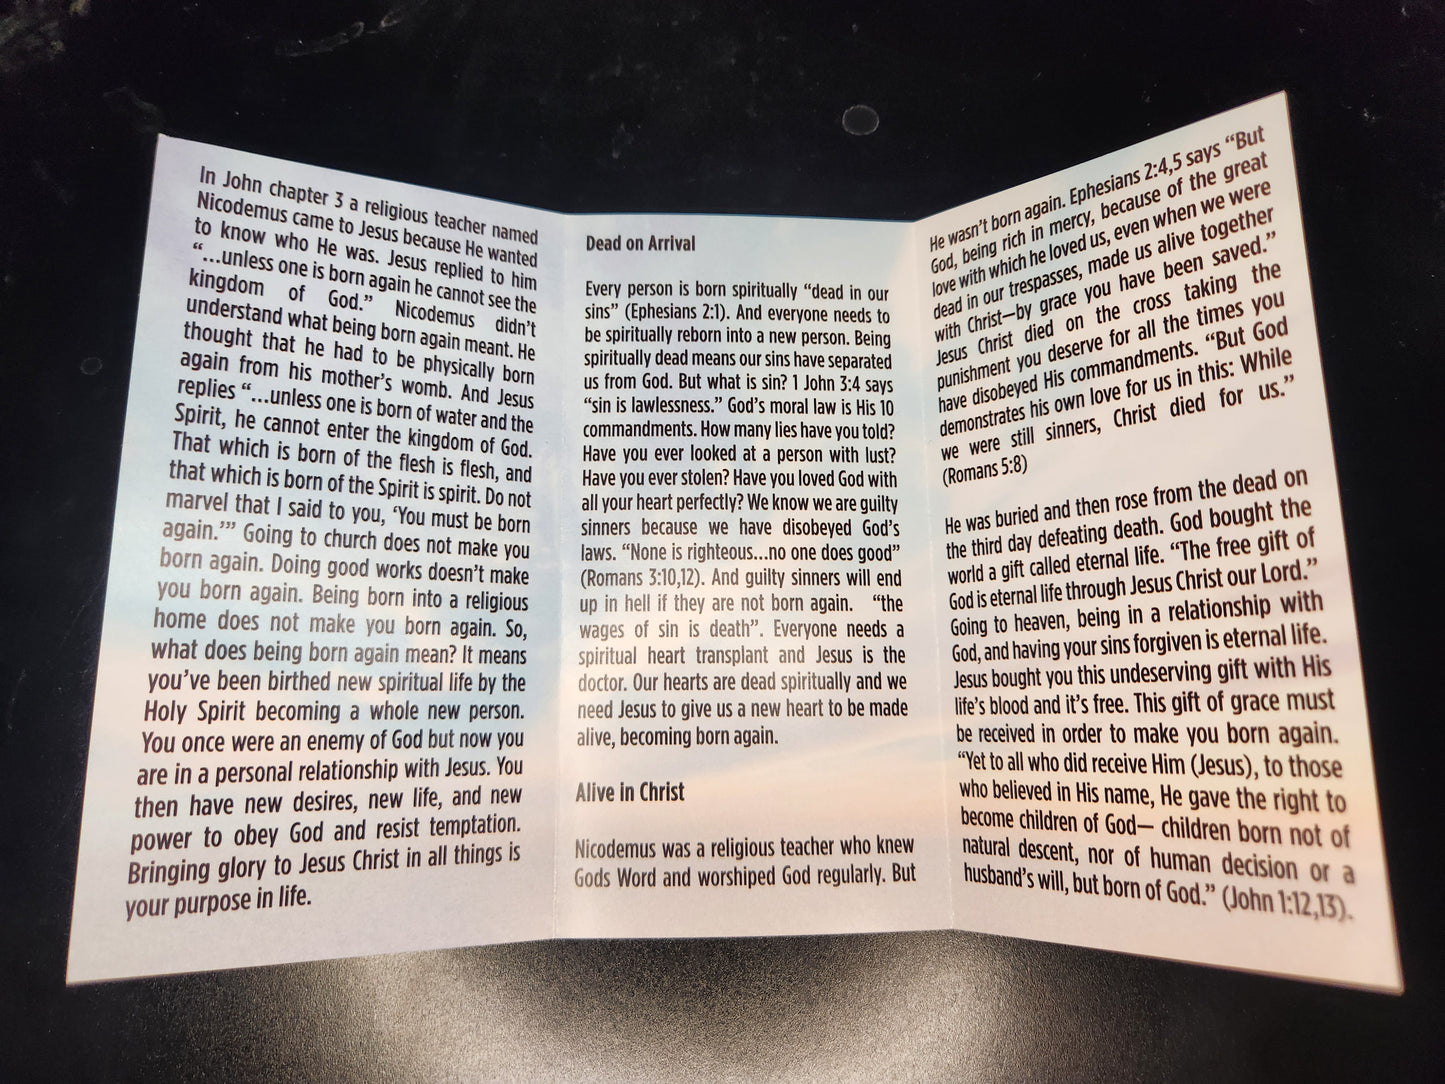 In John chapter 3 a religious teacher named
Nicodemus came to Jesus because He wanted
to know who He was. Jesus replied to him
“...unless one is born again he cannot see the
kingdom of God.” Nicodemus didn’t
understand what being born again meant. He
thought that he had to be physically born
again from his mother’s womb. And Jesus
replies “...unless one is born of water and the
Spirit, he cannot enter the kingdom of God.
That which is born of the flesh is flesh, and
that which is born of the Spirit is spirit. Do not
marvel that I said to you, ‘You must be born
again.’” Going to church does not make you
born again. Doing good works doesn’t make
you born again. Being born into a religious
home does not make you born again. So,
what does being born again mean? It means
you’ve been birthed new spiritual life by the
Holy Spirit becoming a whole new person.
You once were an enemy of God but now you
are in a personal relationship with Jesus. You
then have new desires, new life, and new
power to obey God and resist temptation.
Bringing glory to Jesus Christ in all things is
your purpose in life.
Dead on Arrival
Every person is born spiritually “dead in our
sins” (Ephesians 2:1). And everyone needs to
be spiritually reborn into a new person. Being
spiritually dead means our sins have separated
us from God. But what is sin? 1 John 3:4 says
“sin is lawlessness.” God’s moral law is His 10
commandments. How many lies have you told?
Have you ever looked at a person with lust?
Have you ever stolen? Have you loved God with
all your heart perfectly? We know we are guilty
sinners because we have disobeyed God’s
laws. “None is righteous...no one does good”
(Romans 3:10,12). And guilty sinners will end
up in hell if they are not born again. “the
wages of sin is death”. Everyone needs a
spiritual heart transplant and Jesus is the
doctor. Our hearts are dead spiritually and we
need Jesus to give us a new heart to be made
alive, becoming born again.
Alive in Christ
Nicodemus was a religious teacher who knew
Gods Word and worshiped God regularly. But
He wasn’t born again. Ephesians 2:4,5 says “But
God, being rich in mercy, because of the great
love with which he loved us, even when we were
dead in our trespasses, made us alive together
with Christ—by grace you have been saved.”
Jesus Christ died on the cross taking the
punishment you deserve for all the times you
have disobeyed His commandments. “But God
demonstrates his own love for us in this: While
we were still sinners, Christ died for us.”
(Romans 5:8)
He was buried and then rose from the dead on
the third day defeating death. God bought the
world a gift called eternal life. “The free gift of
God is eternal life through Jesus Christ our Lord.”
Going to heaven, being in a relationship with
God, and having your sins forgiven is eternal life.
Jesus bought you this undeserving gift with His
life’s blood and it’s free. This gift of grace must
be received in order to make you born again.
“Yet to all who did receive Him (Jesus), to those
who believed in His name, He gave the right to
become children of God— children born not of
natural descent, nor of human decision or a
husband’s will, but born of God.” (John 1:12,13).